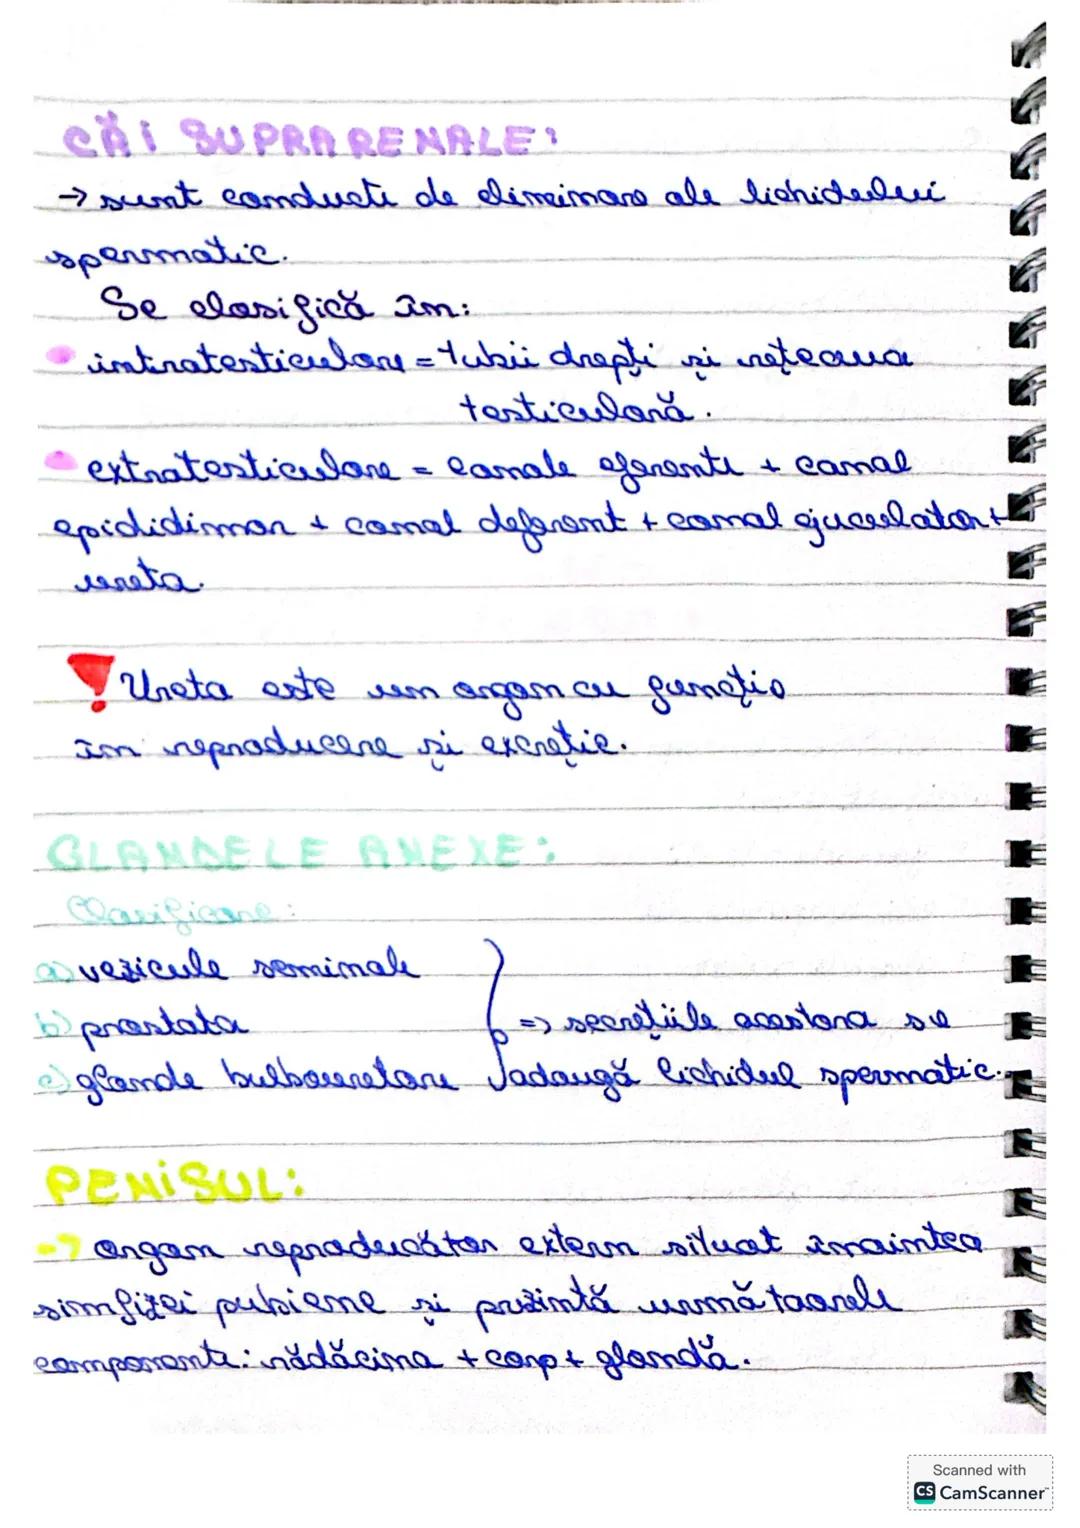 CĂI SUPRARENALE:
→ sunt conducti de eliminare ale lichidului
spermatic.
Se clasifică în:
intratesticulare = tubii drepți și rețeaua
testiculară.
extratesticulare = canale eferente + canal
epididimar + canal deferent + canal ejuculator +
ureta.
! Ureta este un organ cu funcție
în reproducere și excreție.
GLANDELE ANEXE:
Clasificare:
a) vezicule seminale
b) prostata => secrețiile acestora se
c) glande bulbouretare adaugă lichidul spermatic.
PENISUL:
→ organ reproducător extern situat înaintea
simfizei pubiene și prezintă urmă toarele
componente: rădăcina + corp + glandă.
Scanned with
CS CamScanner